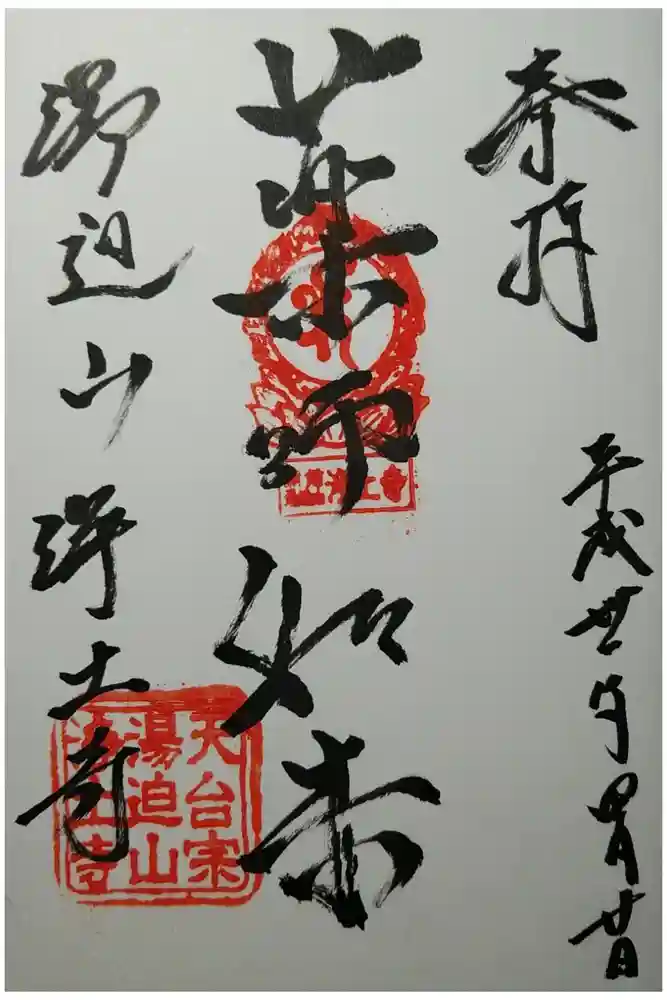 奉拝
平成丗年四月廿日
薬師如来
湯迫山浄土寺
天台宗
湯迫山
浄土寺